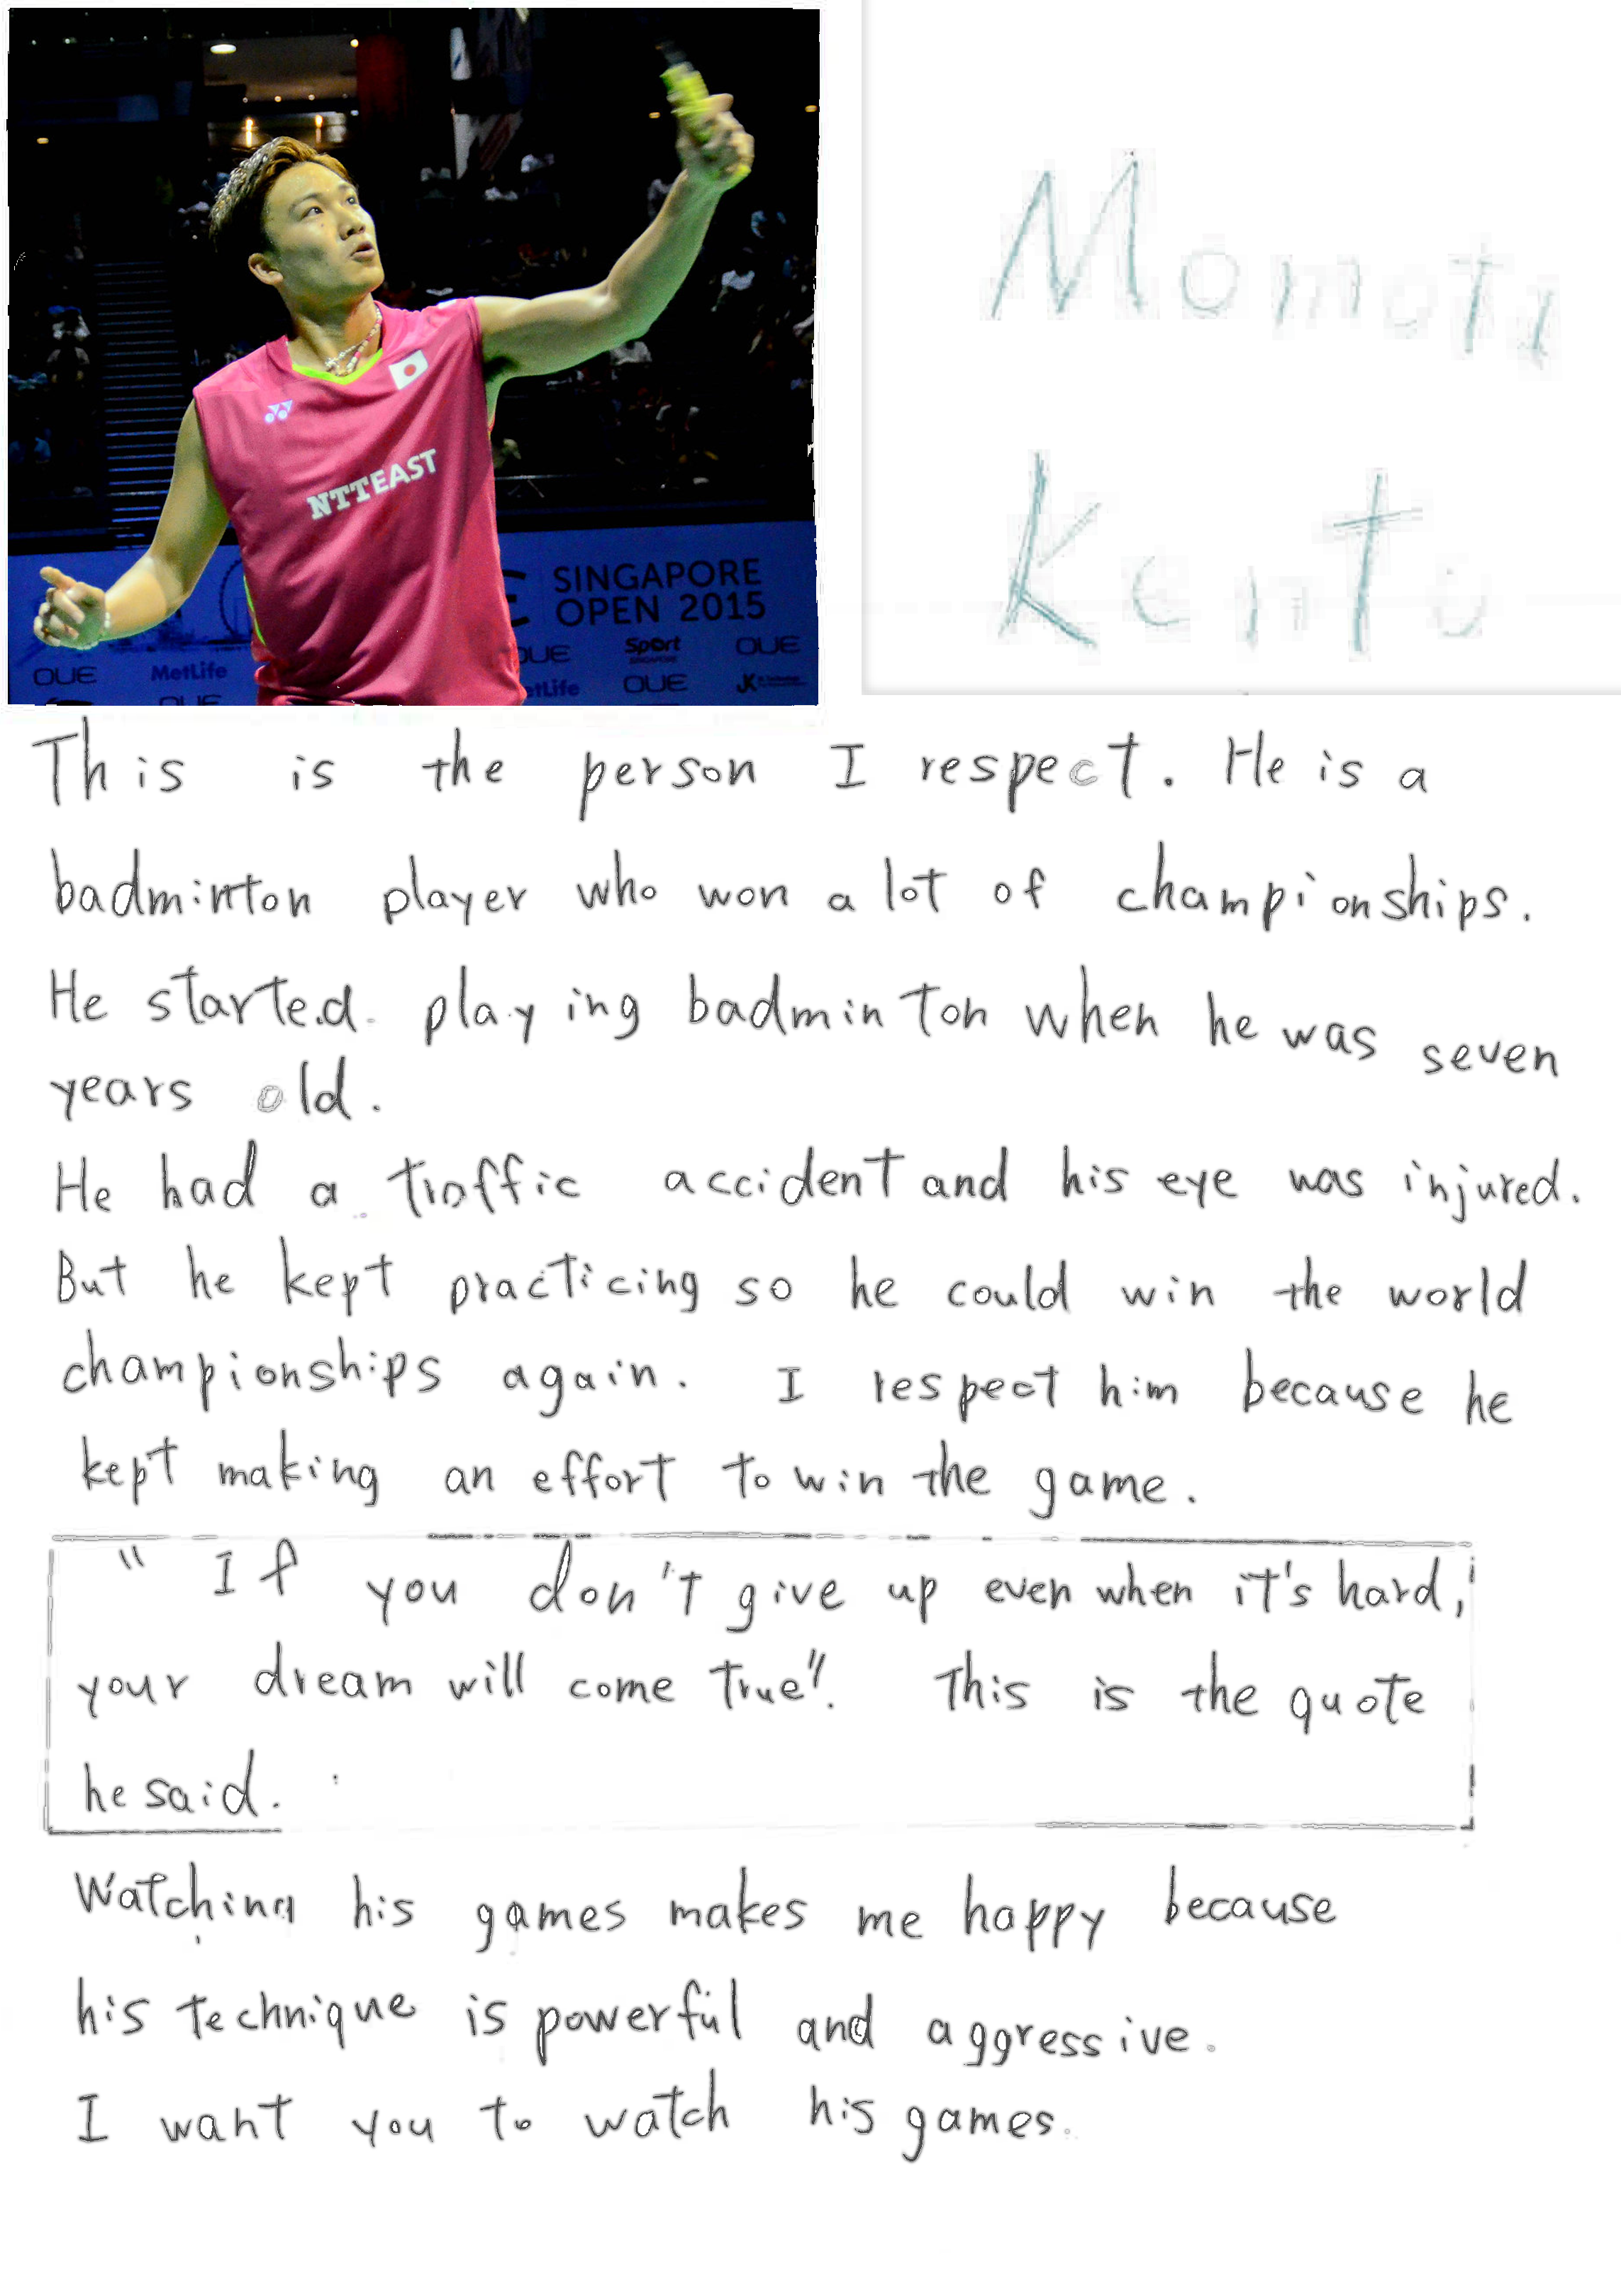 Momota
Kento
NTT EAST
SINGAPORE
OPEN 2015
OUE
MetLife
OUE
OUE
Sport
SINGAPORE
OUE
etLife
OUE
JK
This is the person I respect. He is a
badminton player who won a lot of championships.
He started playing badminton when he was seven
years old.
He had a traffic accident and his eye was injured.
But he kept practicing so he could win the world
championships again. I respect him because he
kept making an effort to win the game.
"If you don't give up even when it's hard,
your dream will come true". This is the quote
he said.
Watching his games makes me happy because
his technique is powerful and aggressive.
I want you to watch his games.